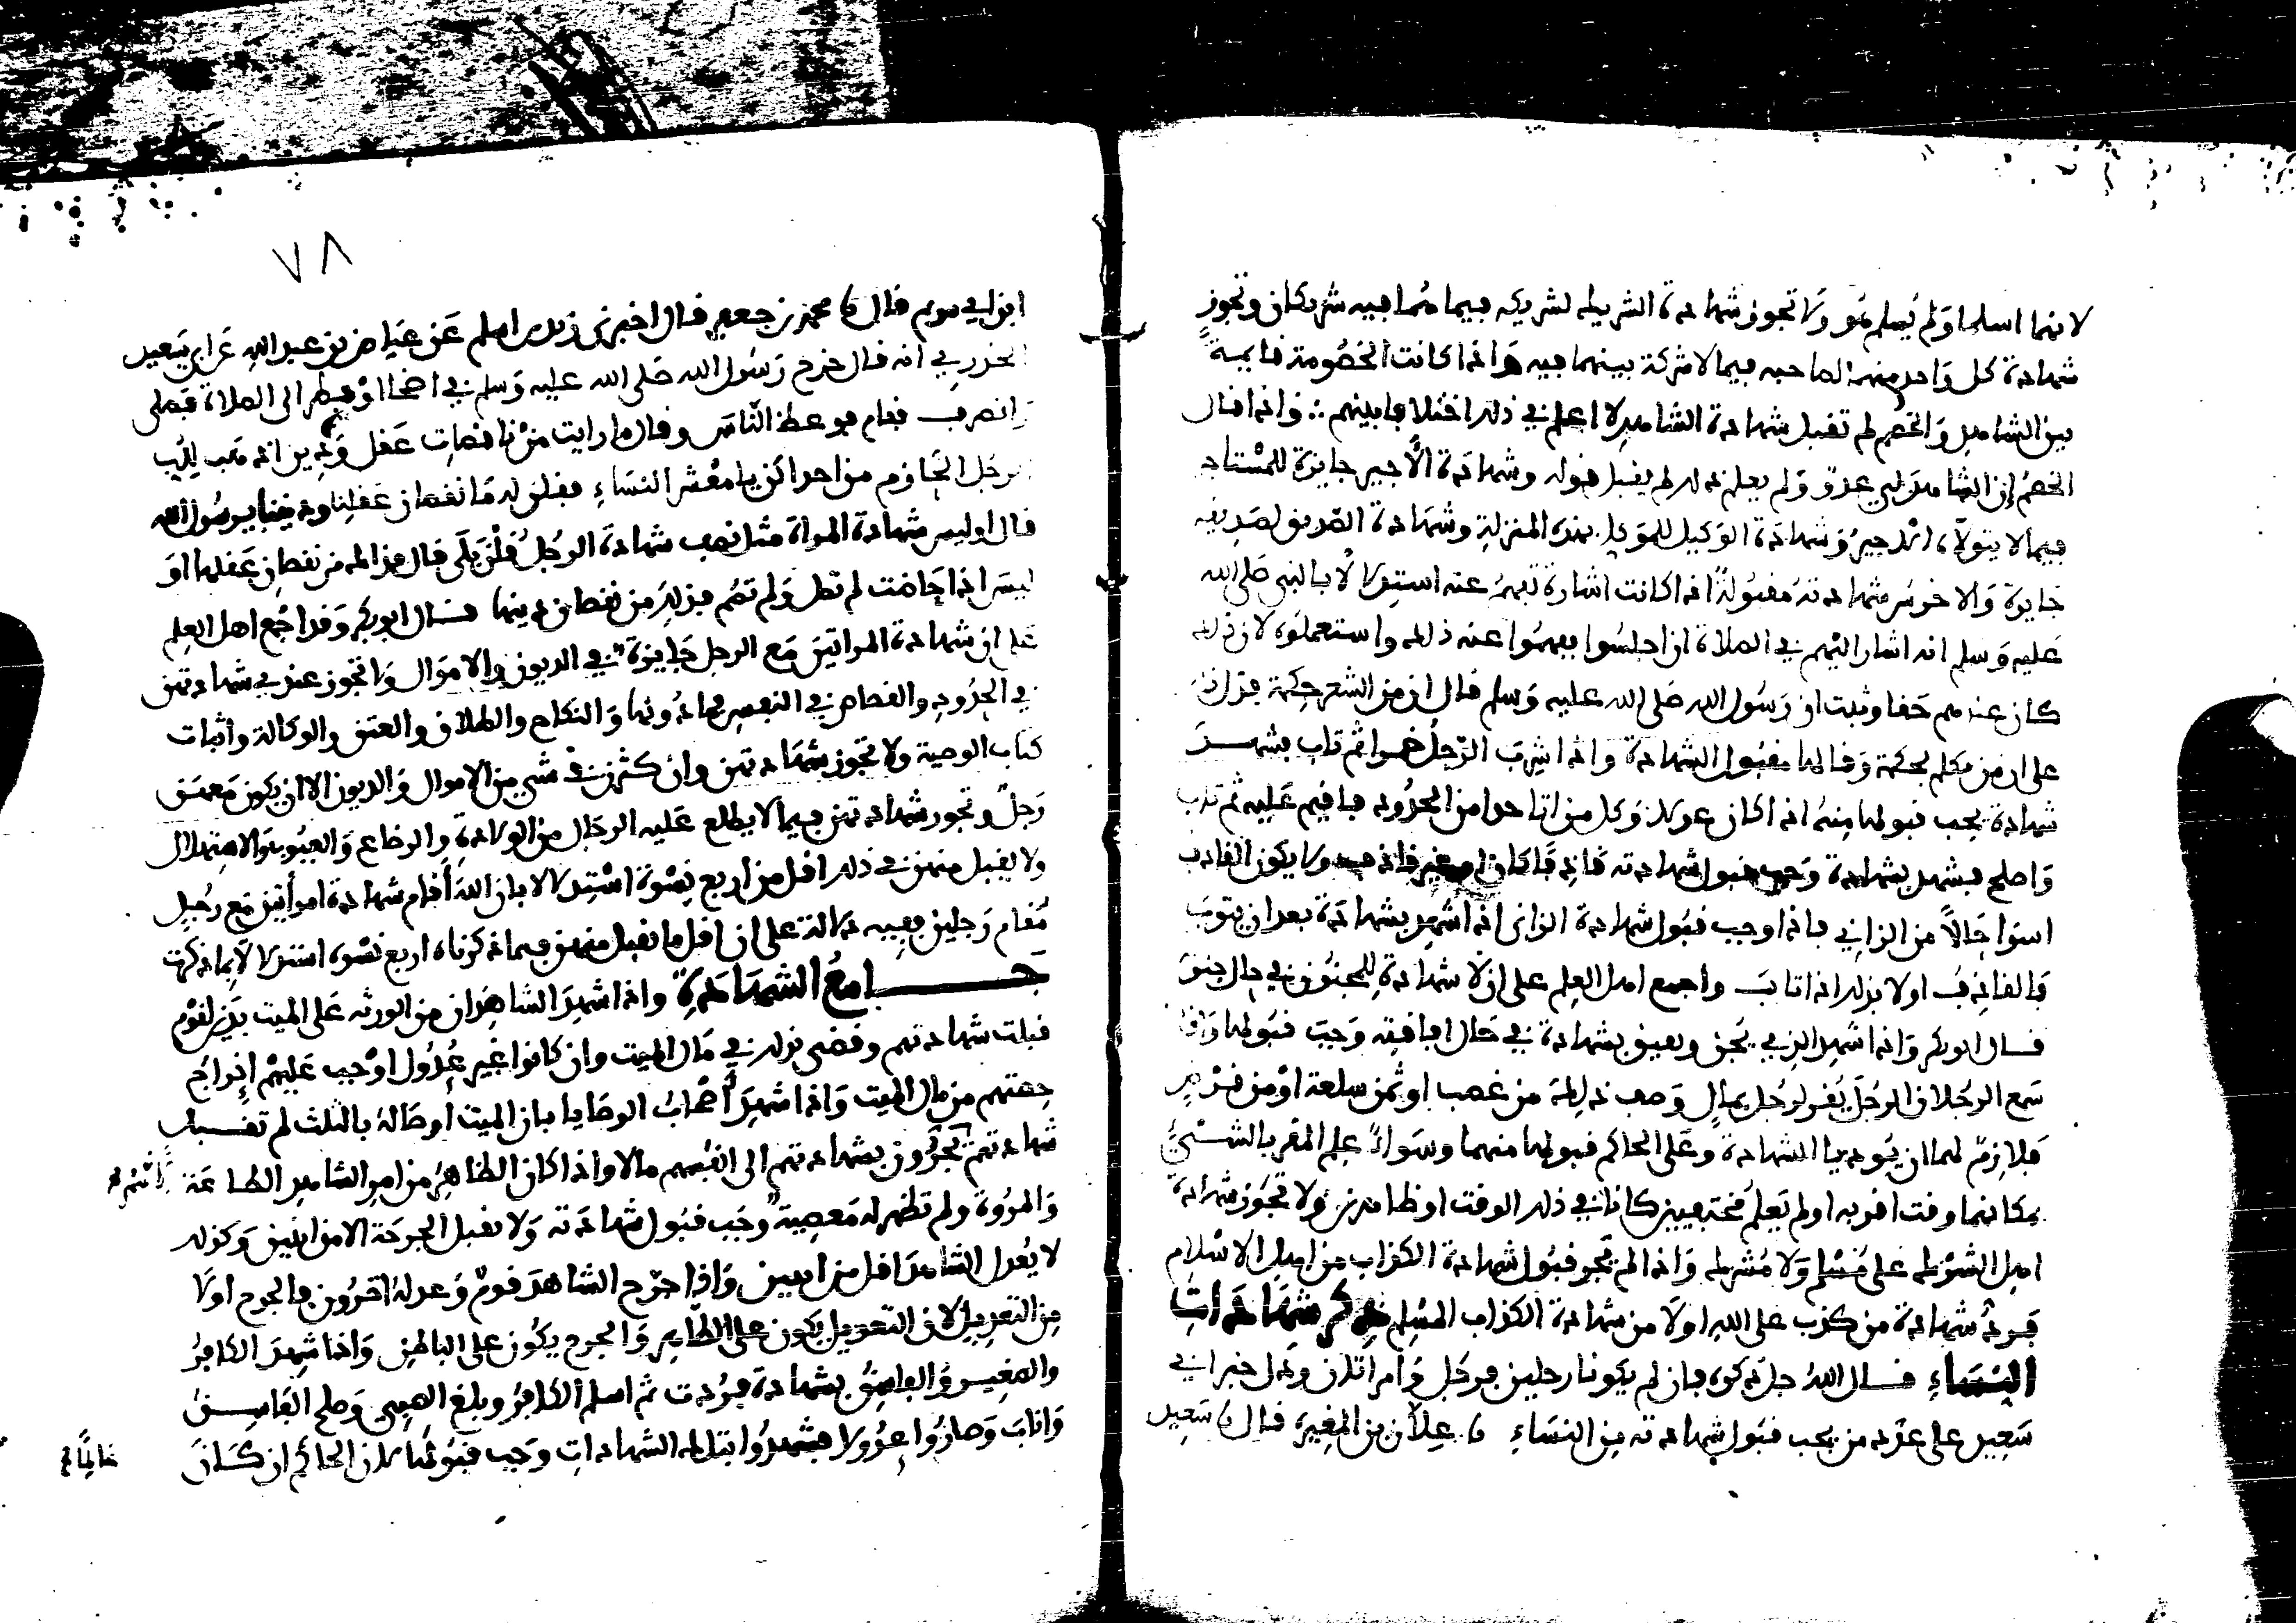 لانهما اسلما اولم يسلم هو ولا تجوز شهادة الشريك لشريكه فيما هما فيه شريكان وتجوز
شهادة كل واحد منهما لصاحبه فيما لا شركة بينهما فيه واذا كانت الخصومة قايمة
بين الشاهد والخصم لم تقبل شهادة الشاهد لا اعلم في ذلك اختلافا بينهم ∴ واذا قال
الخصم ان الشاهد لي عدو ولم يعلم ذلك لم يقبل قوله وشهادة الاجير جايزة للمستاجر
فيما لا يتولاه الاجير وشهادة الوكيل للموكل بهذه المنزلة وشهادة الصديق لصديقه
جايزة والاخرس شهادته مقبولة اذا كانت اشارة تفهم عنه استدلالا بالنبي صلى الله
عليه وسلم انه اشار اليهم في الصلاة ان اجلسوا ففهموا عنه ذلك واستعملوه لان ذلك
كان عندهم حقا وثبت ان رسول الله صلى الله عليه وسلم قال ان من الشعر حكمة فدل ذلك
على ان من تكلم بحكمة وقالها مقبول الشهادة واذا شرب الرجل خمرا ثم تاب فشهد
شهادة يجب قبولها منه اذا كان عدلا وكل من اتا حدا من الحدود فاقيم عليه ثم تاب
واصلح فشهد بشهادة وجب قبول شهادته قاذفا كان او غير قاذف ولا يكون القاذف
اسوا حالا من الزاني فاذا وجب قبول شهادة الزاني اذا شهد بشهادة بعد ان يتوب
فالقاذف اولا بذلك اذا تاب واجمع اهل العلم على ان لا شهادة للمجنون في حال جنونه
قال ابو بكر واذا شهد الذي يجن ويفيق بشهادة في حال افاقته وجب قبولها واذا
سمع الرجلان الرجل يقر لرجل بمال وصف ذلك من غصب او ثمن سلعة او من قرض
فلازم لهما ان يوديا الشهادة وعلى الحاكم قبولها منهما وسواء علم المقر بالشيء
بمكانهما وقت اقراره او لم يعلم مختبيين كانا في ذلك الوقت او ظاهرين ولا تجوز شهادة
اهل الشرك على مسلم ولا مشرك واذا لم يجز قبول شهادة الكذاب من اهل الاسلام
فرد شهادة من كذب على الله اولا من شهادة الكذاب المسلم ذكر شهادات
النساء قال الله جل ذكره فان لم يكونا رجلين فرجل وامراتان ودل خبر ابي
سعيد على عدد من يجب قبول شهادته من النساء نا علان بن المغيرة قال نا سعيد
٧٨
ابن ابي مريم قال نا محمد بن جعفر قال اخبرني زيد بن اسلم عن عياض بن عبد الله عن ابي سعيد
الخدري انه قال خرج رسول الله صلى الله عليه وسلم في اضحا او فطر الى الصلاة فصلى
وانصرف فقام فوعظ الناس وقال ما رايت من ناقصات عقل ودين اذهب للب
الرجل الحازم من احداكن يا معشر النساء فقلن له ما نقصان عقلنا وديننا يرسول الله
قال اوليس شهادة المراة مثل نصف شهادة الرجل قلن بلى قال فذلك من نقصان عقلها او
ليس اذا حاضت لم تصل ولم تصم فذلك من نقصان دينها قال ابو بكر وقد اجمع اهل العلم
على ان شهادة المراتين مع الرجل جايزة في الديون والاموال ولا تجوز عندي شهادتهن
في الحدود والقصاص في النفس فما دونها والنكاح والطلاق والعتق والوكالة واثبات
كتاب الوصية ولا تجوز شهادتهن وان كثرن في شي من الاموال والديون الا ان يكون معهن
رجل وتجوز شهادتهن فيما لا يطلع عليه الرجال من الولادة والرضاع والعيوب والاستهلال
ولا يقبل منهن في ذلك اقل من اربع نسوة استدلالا بان الله اقام شهادة امراتين مع رجل
مقام رجلين ففيه دلالة على ان اقل ما يقبل منهن فيما ذكرناه اربع نسوة استدلالا بما ذكرت
جامع الشهادة واذا شهد الشاهدان من الورثة على الميت بدين لقوم
قبلت شهادتهم وقضى بذلك في مال الميت وان كانوا غير عدول اوجب عليهم اخراج
حصتهم من مال الميت واذا شهد اصحاب الوصايا بان الميت اوصا له بالثلث لم تقبل
شهادتهم يجرون بشهادتهم الى انفسهم مالا واذا كان الظاهر من امر الشاهد الطاعة
والمروة ولم تظهر له معصية وجب قبول شهادته ولا يقبل الجرحة الا من اثنين وكذلك
لا يعدل الشاهد اقل من اثنين واذا جرح الشاهد قوم وعدله اخرون فالجرح اولا
من التعديل لان التعديل يكون على الظاهر والجرح يكون على الباطن واذا شهد الكافر
والصغير والفاسق بشهادة فردت ثم اسلم الكافر وبلغ الصبي وصلح الفاسق
واناب وصاروا عدولا فشهدوا بتلك الشهادات وجب قبولها لان الحاكم ان كان